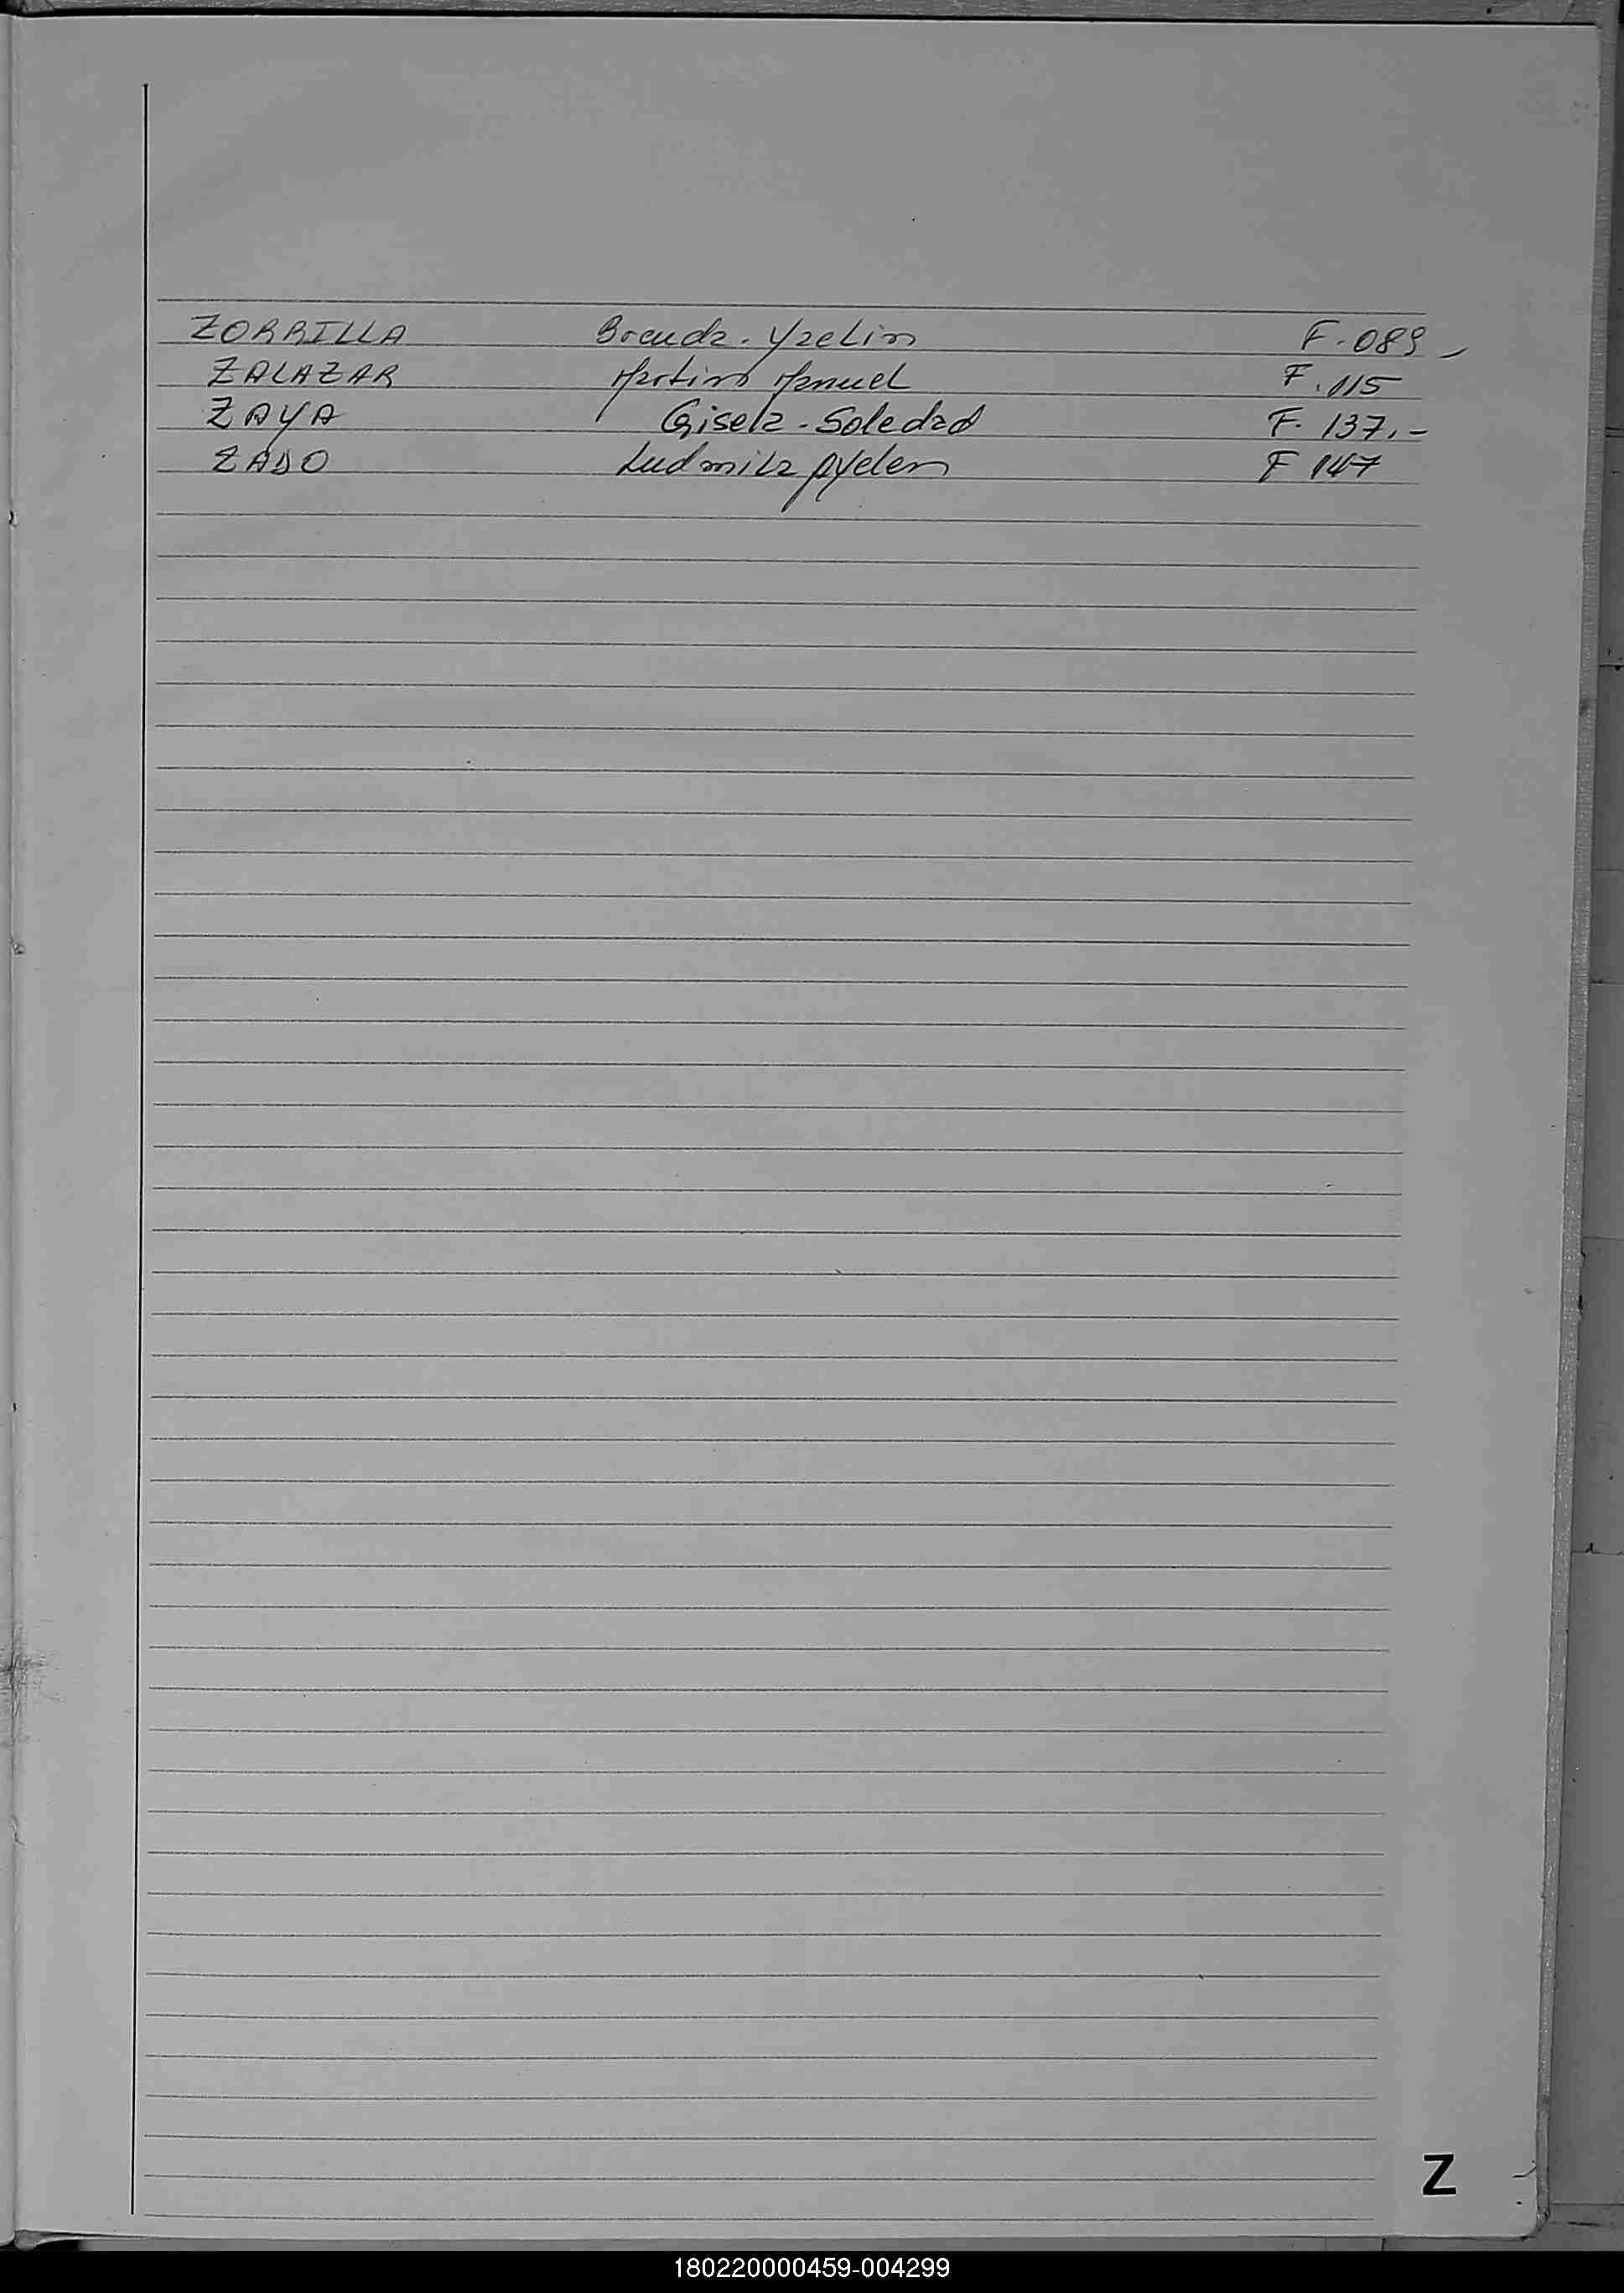 ZORRILLA Brenda. Yaelin F. 089 -
ZALAZAR Martino Manuel F. 115
ZAYA Gisela - Soledad F. 137.-
ZADO Ludmila Aylen F 147
Z
180220000459-004299